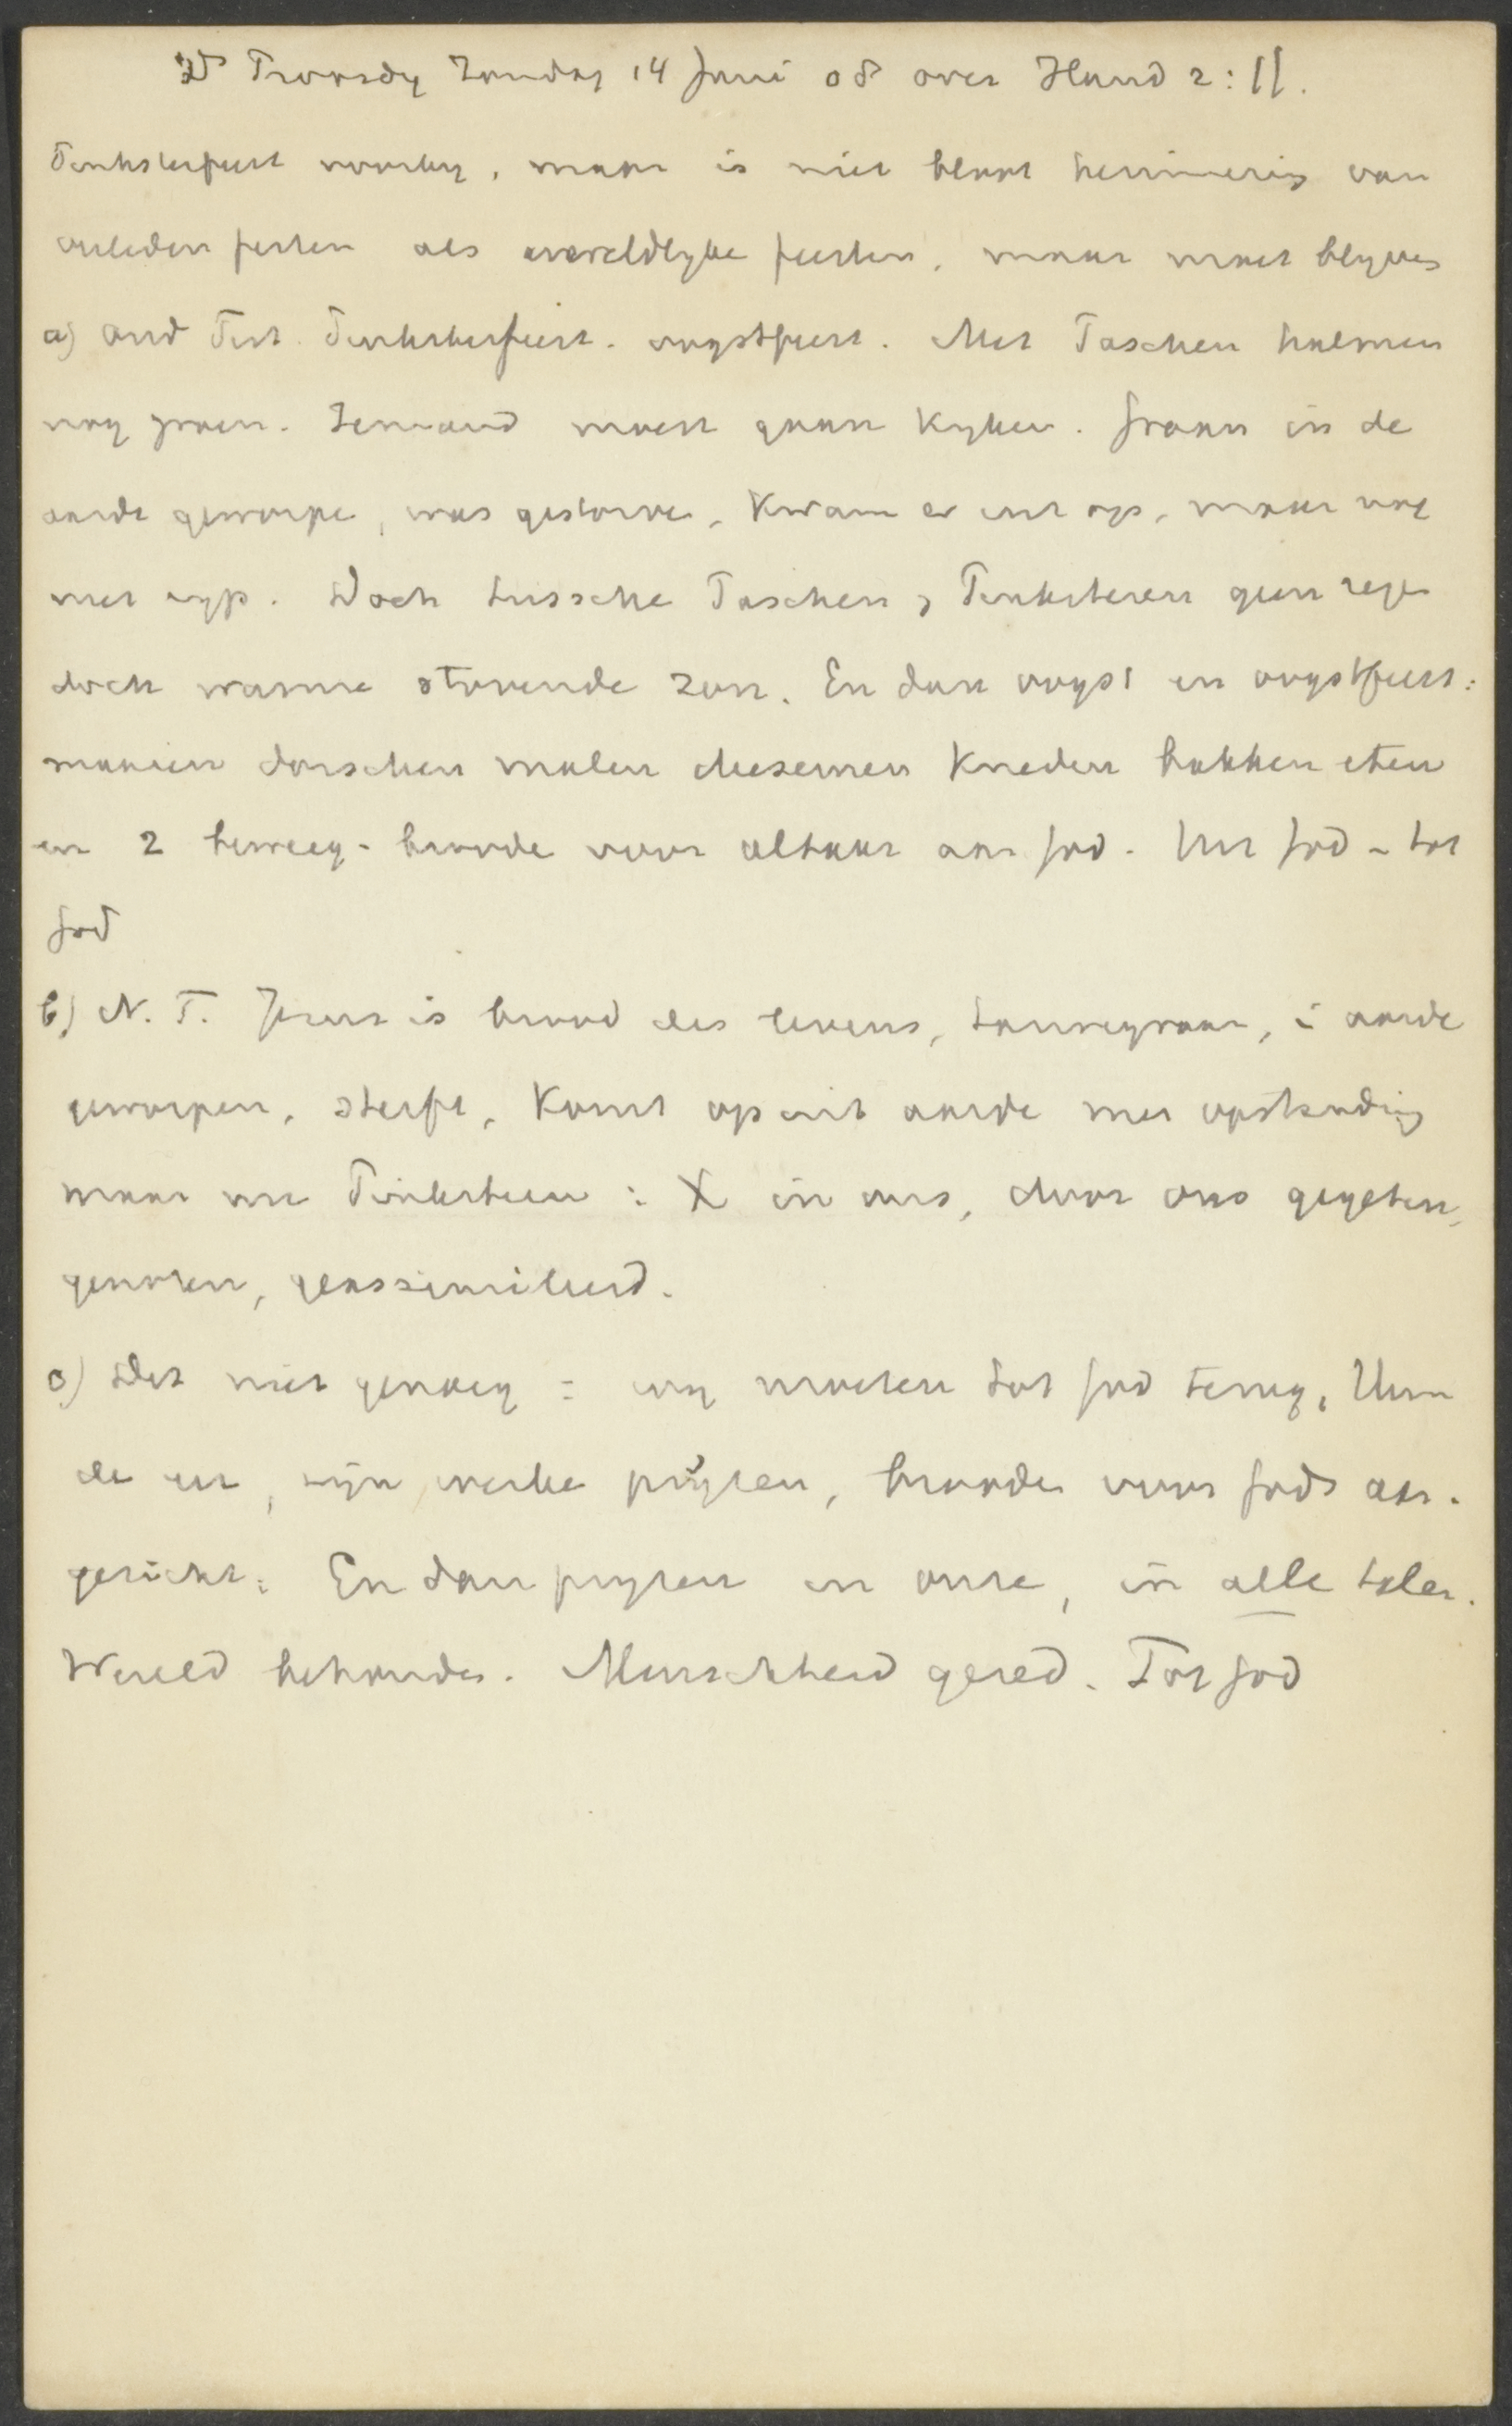 Ds Proosdy Zondag 14 Juni 08 over Hand 2:11.
Pinksterfeest voorby, maar is niet bloot herinnering van
verleden feesten als wereldlyke feesten, maar moet blyven
a) Oud Test. Pinksterfeest. oogstfeest. Met Paschen halmen
nog groen. Iemand moest gaan kyken. Graan in de
aarde geworpe, was gestorve, kwam er uit op, maar nog
niet ryp. Doch tussche Paschen & Pinksteren geen rege
doch warme stovende zon. En dan oogst en oogstfeest:
maaien dorschen malen deesemen kneden bakken eten
en 2 beweeg-broode voor altaar aan God. Uit God - tot
God
b) N. T. Jezus is brood des levens, tarwegraan, i aarde
geworpen, sterft, komt op uit aarde met opstanding
maar nu Pinksteren: X in ons, door ons gegeten,
genoten, geassimileerd.
c) Dit niet genoeg = wy moeten tot God terug, Hem
de eer, zijn werke prijzen, broode voor Gods aan-
gezicht: En dan pryzen in onze, in alle talen.
Wereld behouden. Menschheid gered. Tot God